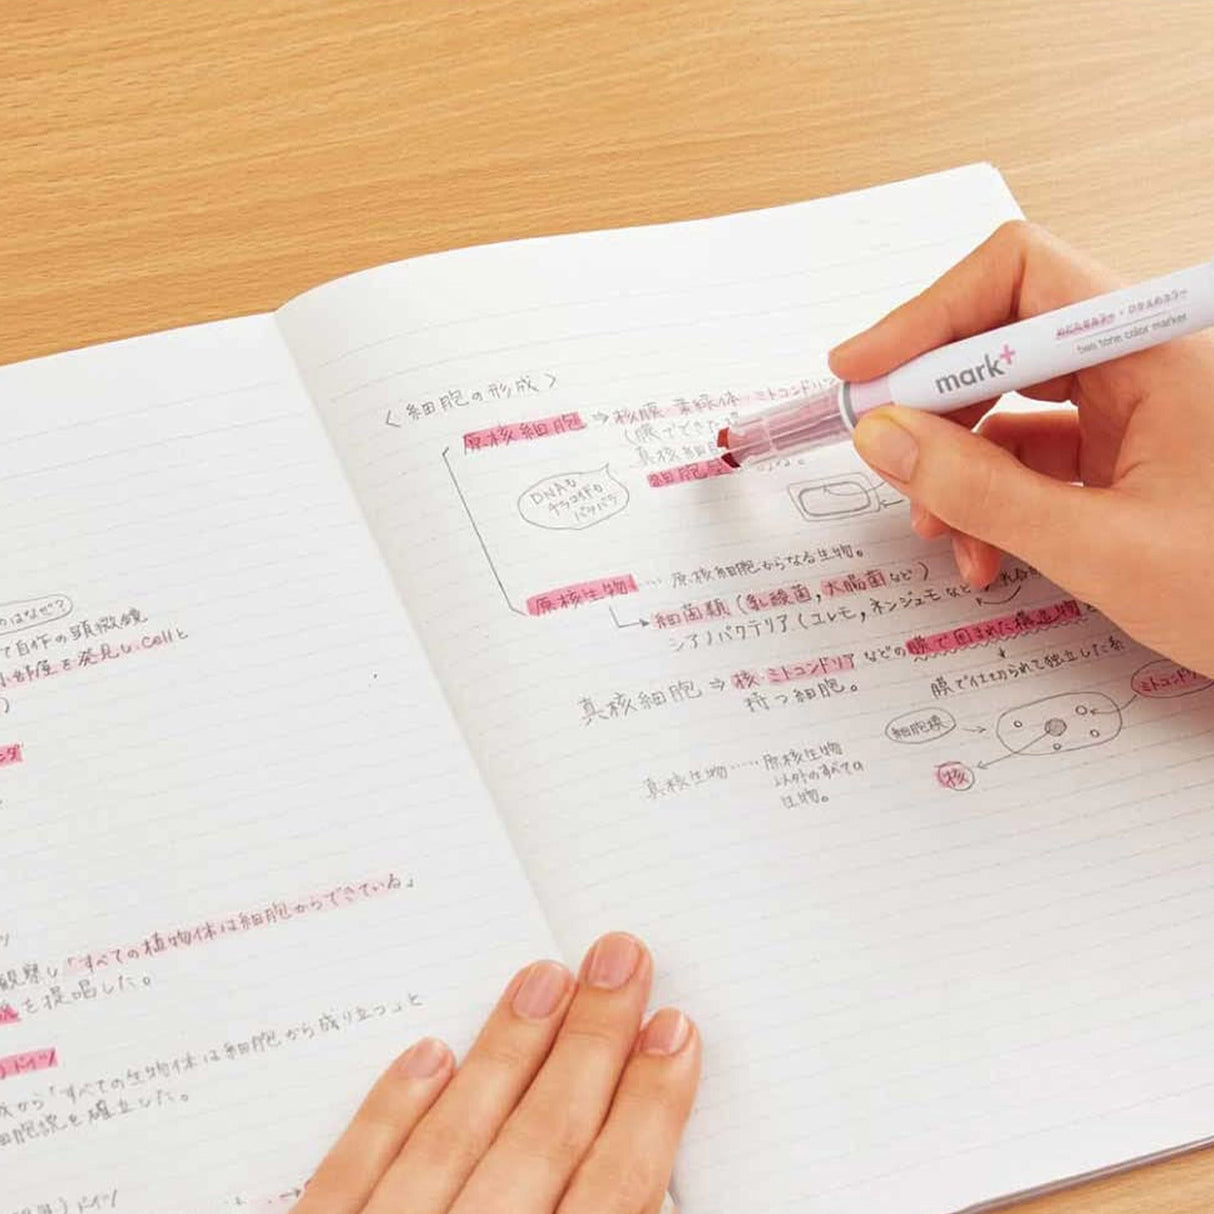 のはなぜ?
て自作の顕微鏡
小部屋を発見し、cellと
観察し「すべての植物体は細胞からできている」
を提唱した。
ドイツ
から「すべての生物体は細胞から成り立つ」と
細胞説を確立した。
ドイツ
〈細胞の形成〉
原核細胞 ⇒ 核膜・葉緑体・ミトコンドリ
(膜でできた
真核細胞
細胞
DNAも
バラバラ
原核生物 …… 原核細胞からなる生物。
細菌類(乳酸菌,大腸菌など)
シアノバクテリア(ユレモ,ネンジュモなど
真核細胞 ⇒ 核・ミトコンドリアなどの膜で囲まれた構造物を
持つ細胞。
膜で仕切られて独立した系
細胞膜
ミトコンドリ
核
真核生物 …… 原核生物
以外のすべての
生物。
mark+
two tone color marker